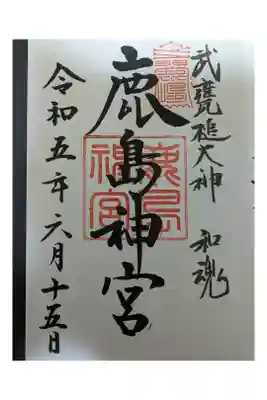 武甕槌大神 和魂
鹿島神宮
鹿島神宮
令和五年六月十五日